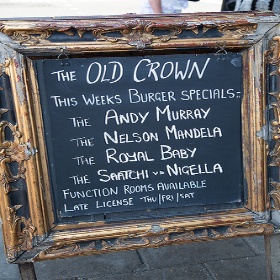 THE OLD CROWN
THIS WEEKS BURGER SPECIALS:-
THE ANDY MURRAY
THE NELSON MANDELA
THE ROYAL BABY
THE SAATCHI v.s NIGELLA
FUNCTION ROOMS AVAILABLE
LATE LICENSE THU/FRI/SAT